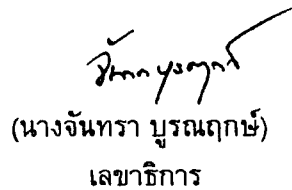 (นางจันทรา บูรณฤกษ์)
เลขาธิการ